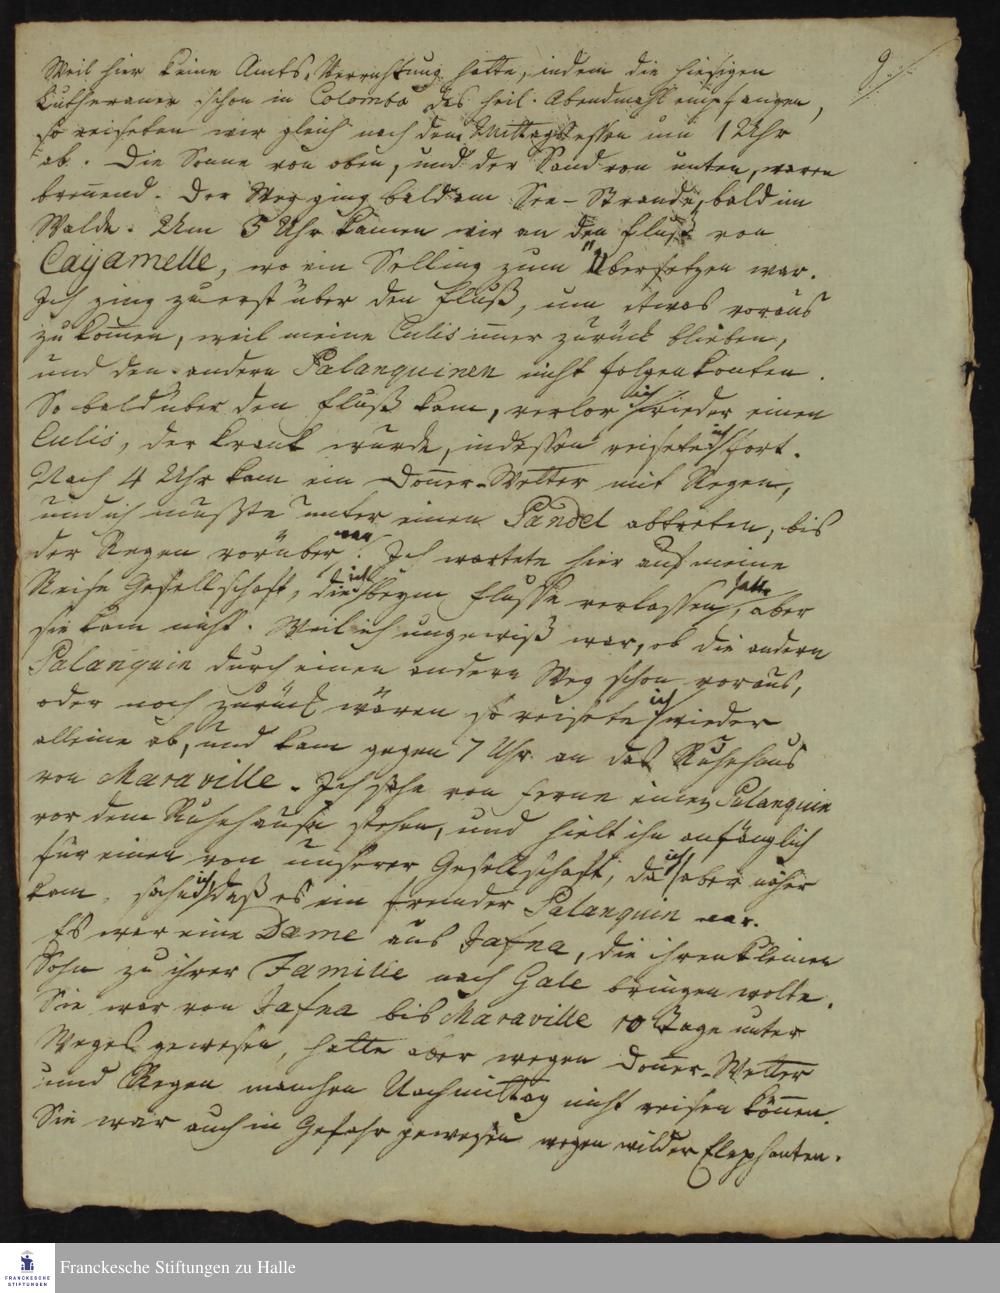 9.
Weil hier keine Amts-Verrichtung hatte, indem die hiesigen
Lutheraner schon in Colombo das heil. Abendmahl empfangen,
so reiseten wir gleich nach dem Mittagsessen um 1 Uhr
ab. Die Sonne von oben, und der Sand von unten, waren
breñend. Der Weg ging bald am See-Strande, bald im
Walde. Um 3 Uhr kamen wir an den Fluß von
Cayamelle, wo ein Selling zum Übersetzen war.
Ich ging zuerst über den Fluß, um etwas voraus
zu kom̄en, weil meine Culis im̄er zurück blieben,
und den andern Palanquinen nicht folgen konten.
So bald über den Fluß kam, verlor ich wieder einen
Culis, der krank wurde, indessen reisete ich fort.
Nach 4 Uhr kam ein Doñer-Wetter mit Regen,
und ich mußte unter einen Pandel abtreten, bis
der Regen vorüber war. Ich wartete hier auf meine
Reise Gesellschaft, die ich beym Flusse verlassen hatte, aber
sie kam nicht. Weil ich ungewiß war, ob die andern
Palanquin durch einen andern Weg schon voraus,
oder noch zurück wären so reisete ich wieder
alleine ab, und kam gegen 7 Uhr an das Ruhehaus
von Maraville. Ich sahe von ferne einen Palanquin
vor dem Ruhehause stehen, und hielt ihn anfänglich
für einen von unserer Gesellschaft, da ich aber näher
kam, sahe ich, daß es ein fremder Palanquin war.
Es war eine Dame aus Jafna, die ihren kleinen
Sohn zu ihrer Familie nach Gale bringen wolte.
Sie war von Jafna bis Maraville 10 Tage unter
Weges gewesen, hatte aber wegen Doñer-Wetter
und Regen manchen Nachmittag nicht reisen köñen.
Sie war auch in Gefahr gewesen wegen wilder Elephanten.
FRANCKESCHE
STIFTUNGEN
Franckesche Stiftungen zu Halle